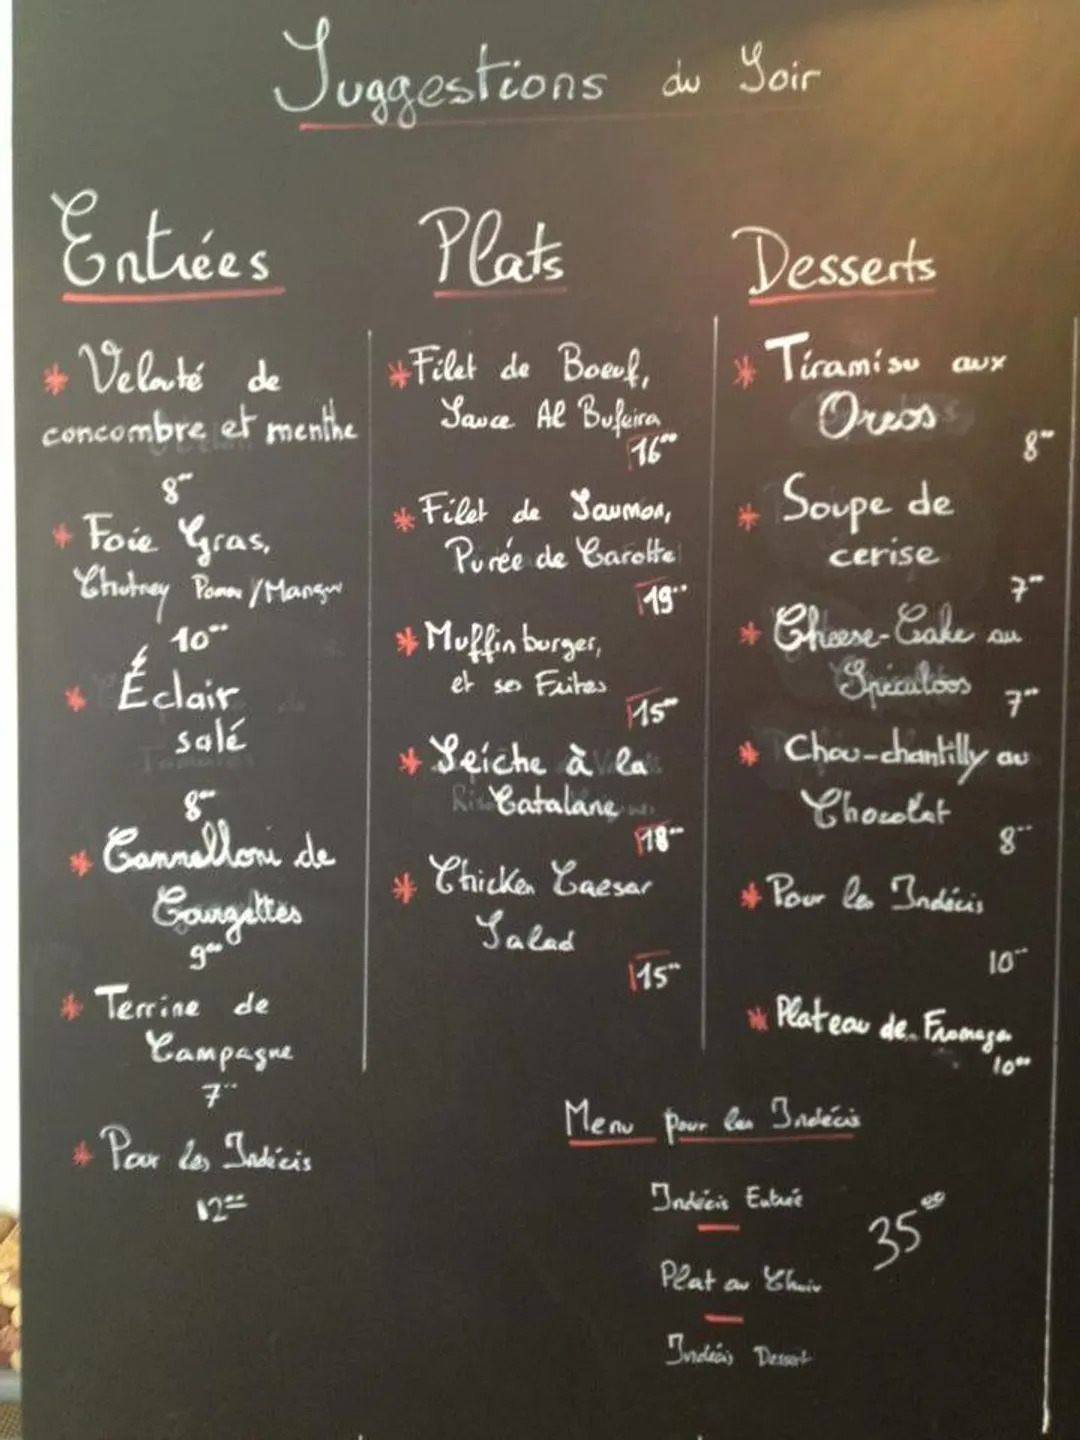 Suggestions du Soir
Entrées
* Velouté de
concombre et menthe
8
* Foie Gras,
Chutney Pomme/Mangue
10
* Éclair
salé
8
* Cannelloni de
Courgettes
9
* Terrine de
Campagne
7
* Pour les Indécis
12
Plats
* Filet de Boeuf,
Sauce Al Bufeira
16
* Filet de Saumon,
Purée de Carotte
19
* Muffin burger,
et ses Frites
15
* Seiche à la
Catalane
18
* Chicken Caesar
Salad
15
Desserts
* Tiramisu aux
Oreos
8
* Soupe de
cerise
7
* Cheese-Cake au
Spéculoos
7
* Chou-chantilly au
Chocolat
8
* Pour les Indécis
10
* Plateau de Fromage
10
Menu pour les Indécis
Indécis Entrée
Plat au Choix
Indécis Dessert
35